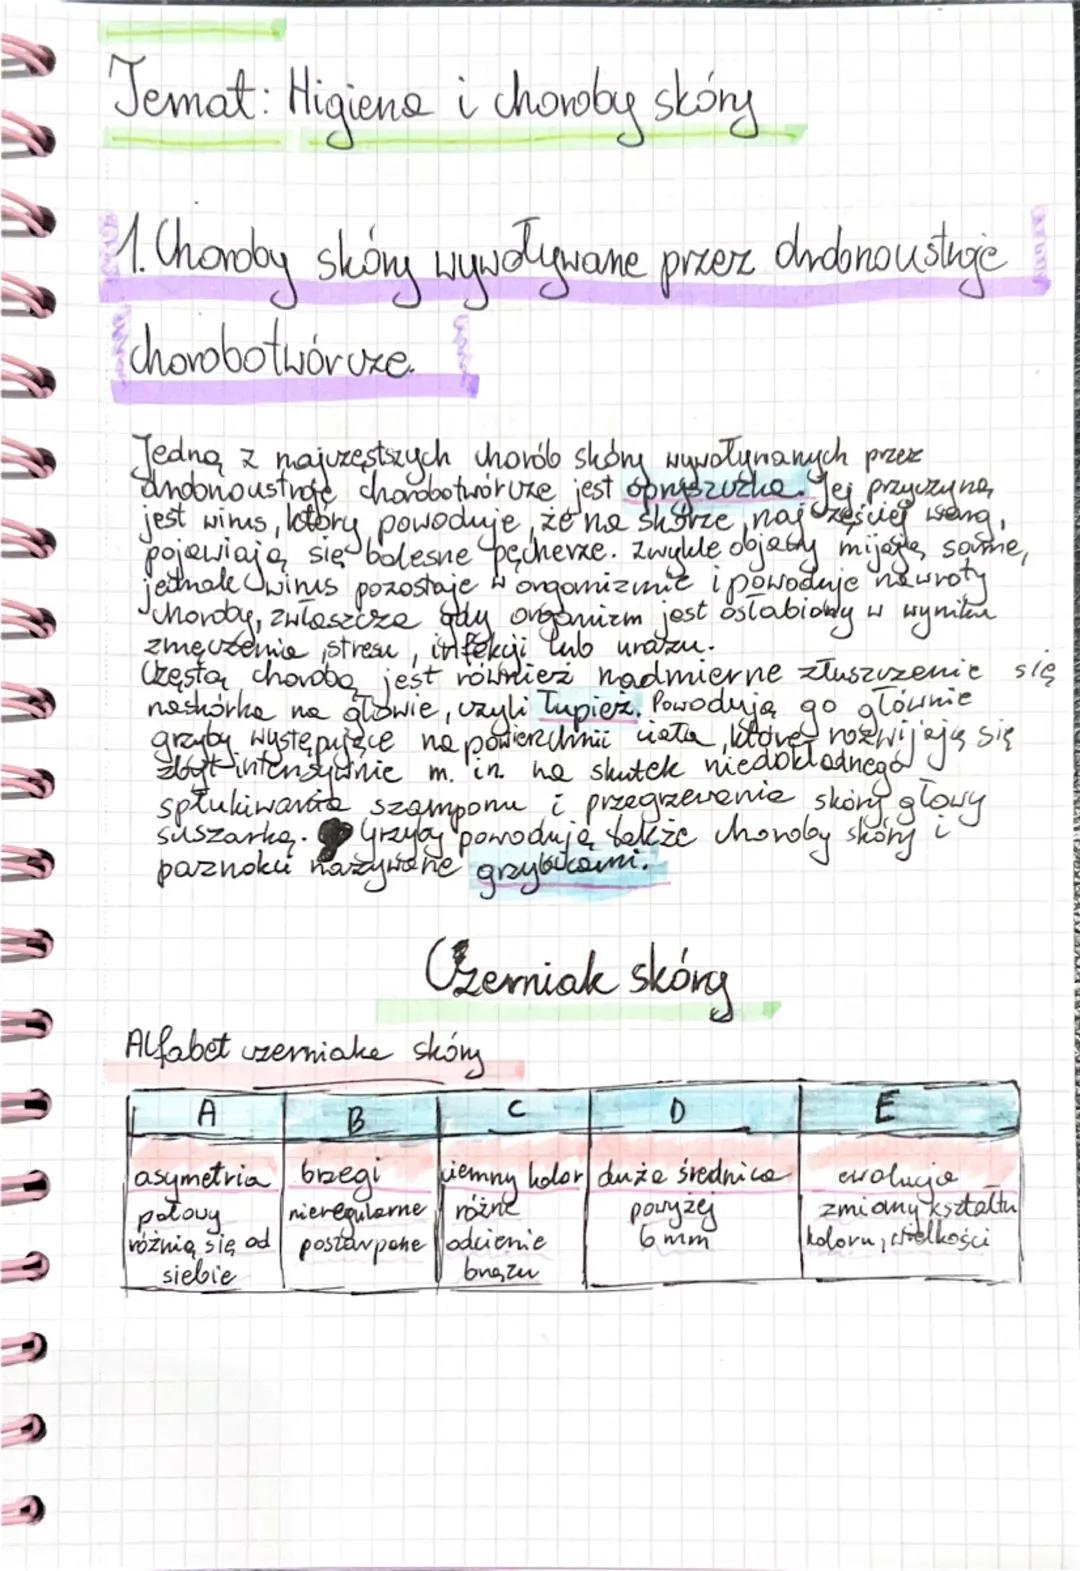 Temat: Higiena i choroby skóry
1. Choroby skóry wywoływane przez drobnoustroje
chorobotwórcze.
Jedną z najczęstszych chorób skóry wywoływanych przez
drobnoustroje chorobotwórcze jest opryszczka. Jej przyczyną
jest wirus, który powoduje, że na skórze, najczęściej warg,
pojawiają się bolesne pęcherze. Zwykle objawy mijają same,
jednak wirus pozostaje w organizmie i powoduje nawroty
choroby, zwłaszcza gdy organizm jest osłabiony w wyniku
zmęczenia, stresu, infekcji lub urazu.
Częstą chorobą jest również nadmierne złuszczenie się
naskórka na głowie, czyli łupież. Powodują go głównie
grzyby występujące na powierzchnii ciała, które rozwijają się
zbyt intensywnie m. in. na skutek niedokładnego
spłukiwania szamponu i przegrzewania skóry głowy
suszarką. Grzyby powodują także choroby skóry i
paznokci nazywane grzybicami.
Czerniak skóry
Alfabet czerniaka skóry
A B C D E
asymetria brzegi ciemny kolor duża średnica ewolucja
połowy nieregularne różne powyżej zmiany kształtu
różnią się od postarpane odcienie 6 mm koloru, wielkości
siebie brązu